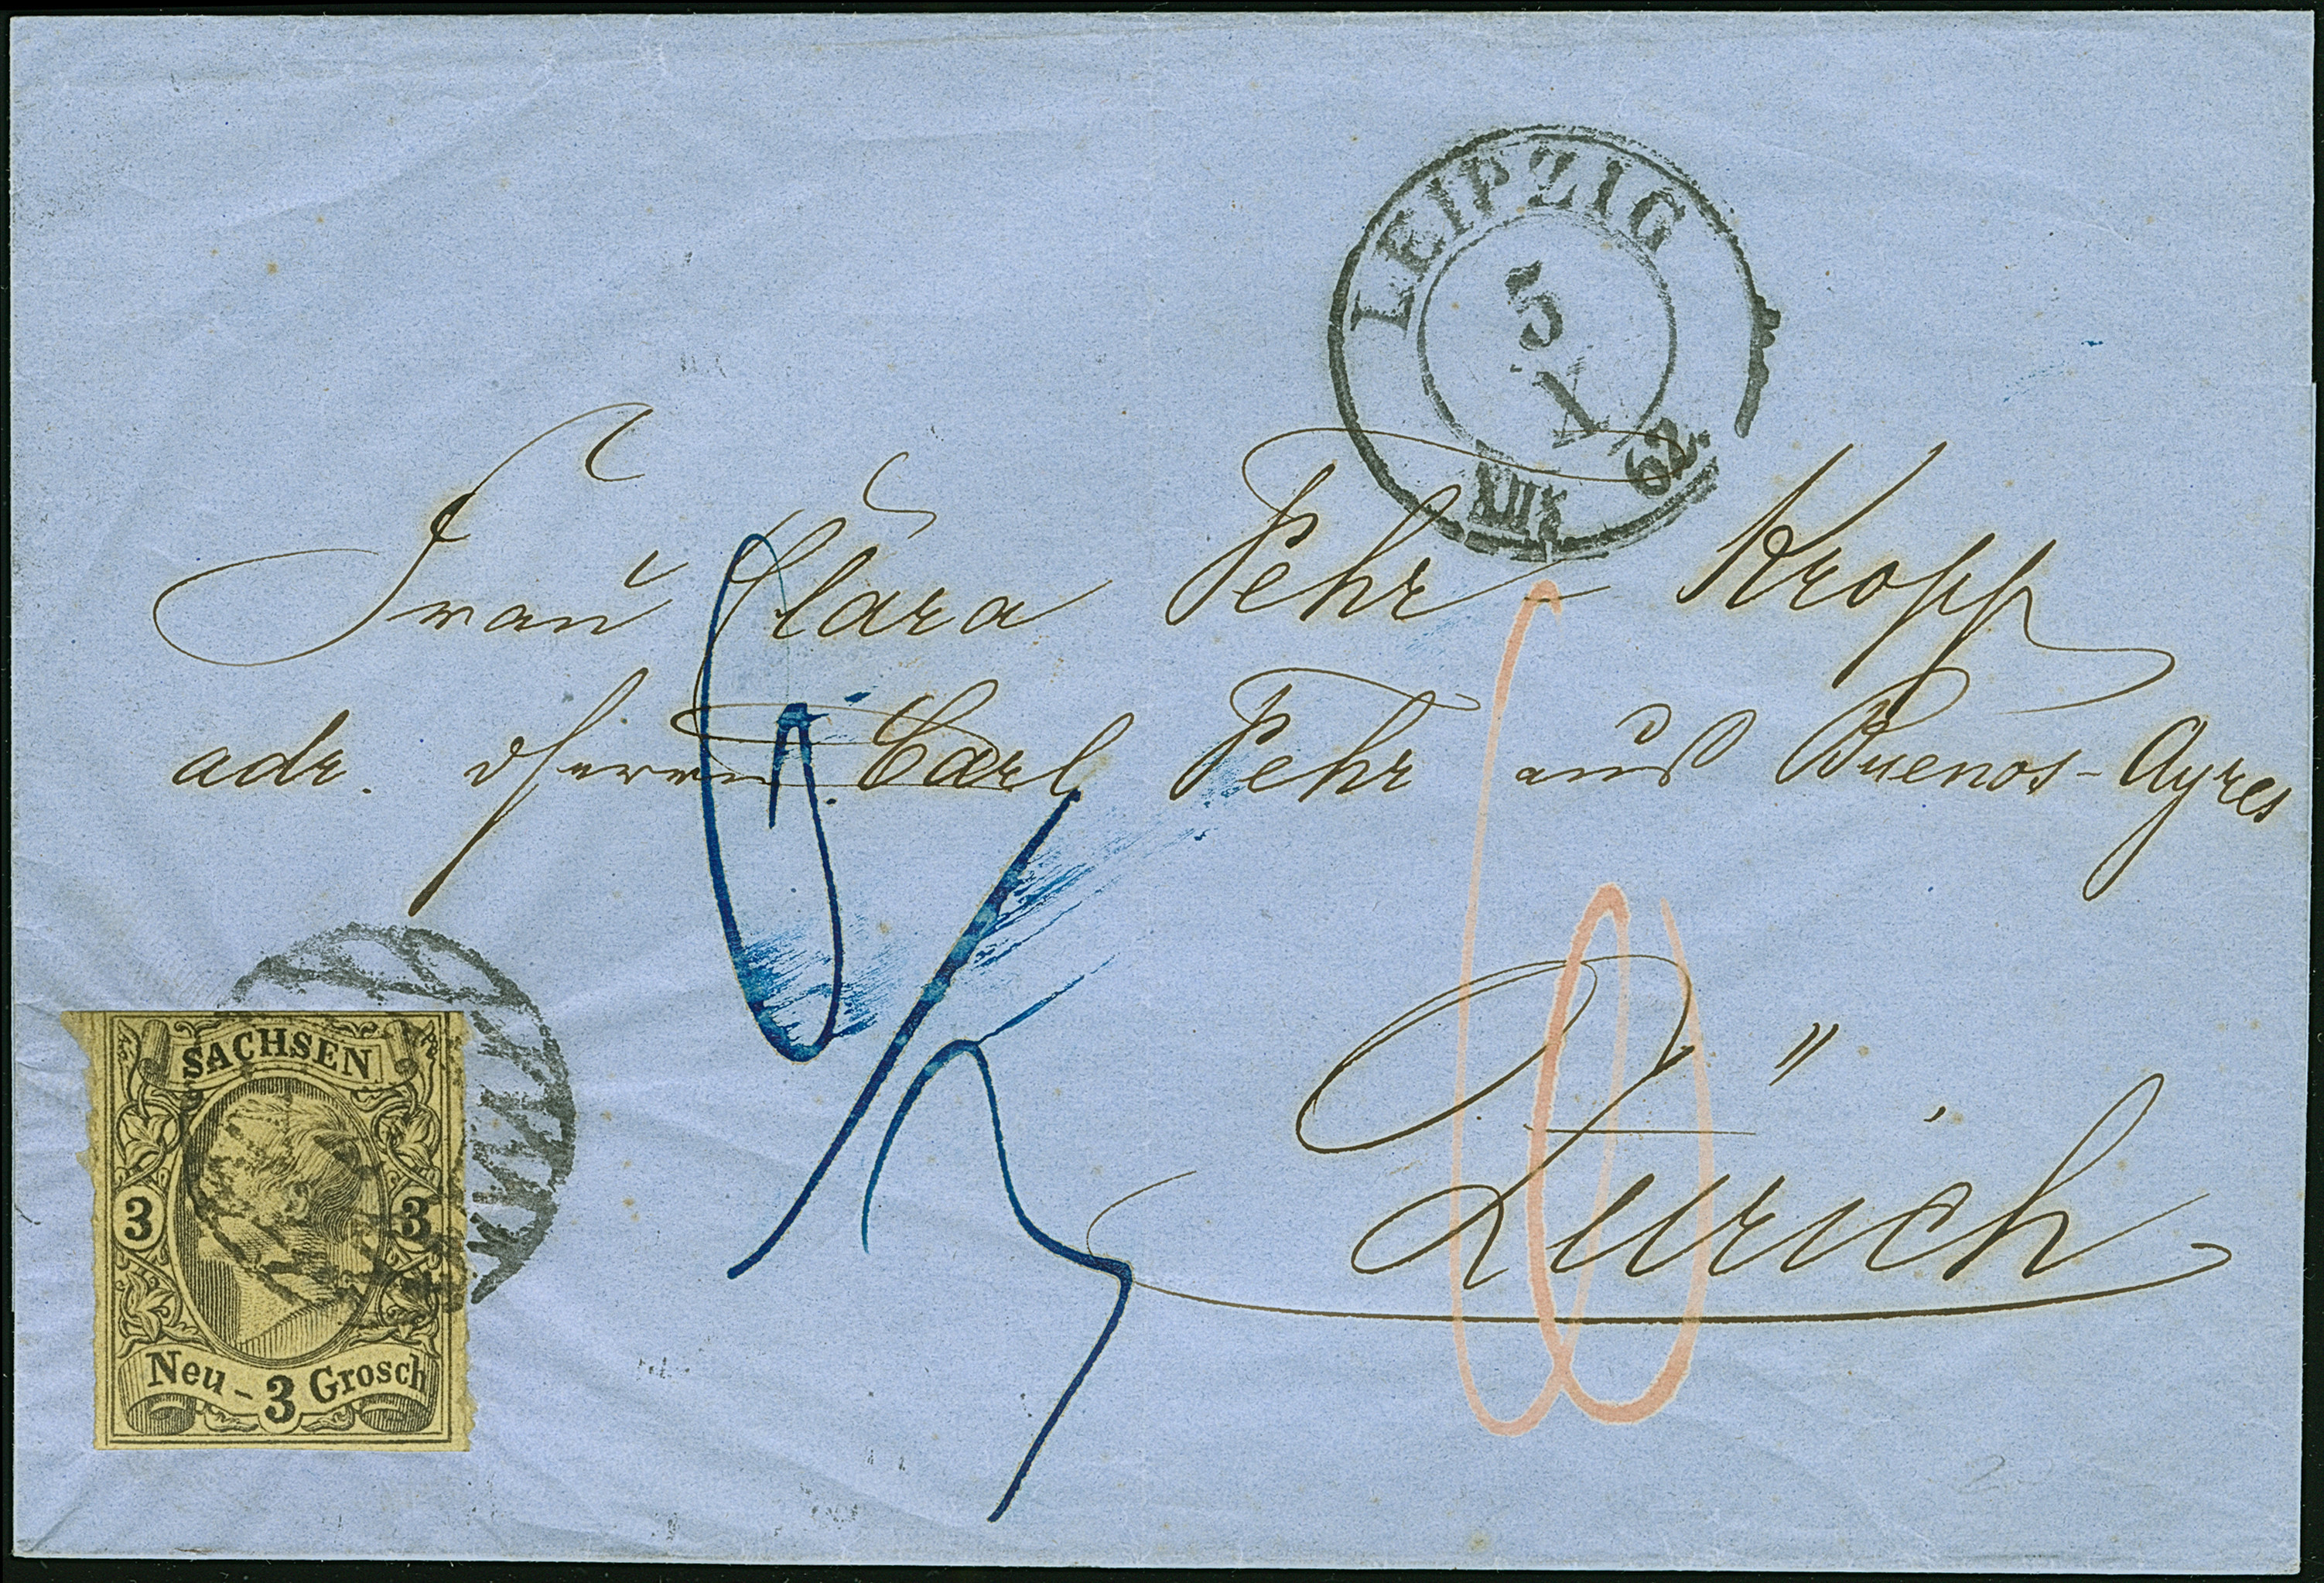 LEIPZIG
5
X
62.
XII
Frau Clara Fehr-Kropp
adr. Herrn Carl Fehr aus Buenos-Ayres
Zürich
6/3
6
SACHSEN
3 3
Neu-3 Grosch